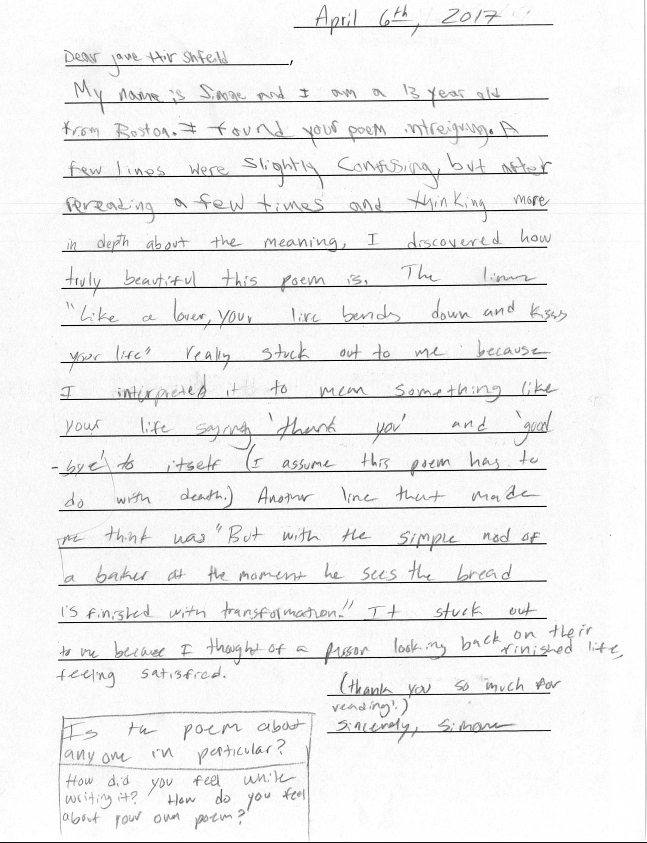 April 6th, 2017
Dear Jane Hirshfeild,
My name is Simone and I am a 13 year old
from Boston. I found your poem intreiguing. A
few lines were slightly confusing, but after
rereading a few times and thinking more
in depth about the meaning, I discovered how
truly beautiful this poem is. The line
"Like a lover, your life bends down and kisses
your life" really stuck out to me because
I interpreted it to mean something like
your life saying 'thank you' and 'good
-bye' to itself (I assume this poem has to
do with death.) Another line that made
me think was "But with the simple nod of
a baker at the moment he sees the bread
is finished with transformation." It stuck out
to me because I thought of a person looking back on their
finished life,
feeling satisfied.
(thank you so much for
reading!)
Sincerely, Simone
Is the poem about
anyone in particular?
How did you feel while
writing it? How do you feel
about your own poem?